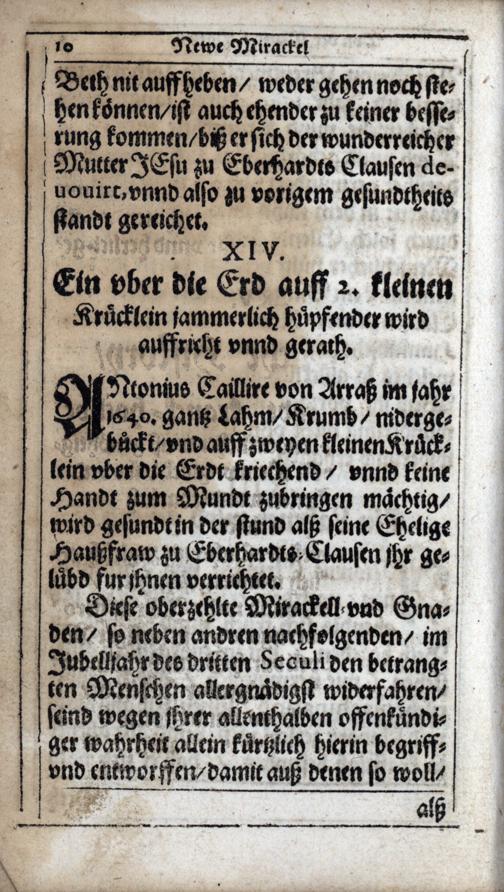 10 Newe Mirackel
Beth nit auffheben/ weder gehen noch ste-
hen können/ist auch ehender zu keiner besse-
rung kommen/biß er sich der wunderreicher
Mutter JEsu zu Eberhardts Clausen de-
uouirt, vnnd also zu vorigem gesundtheits
standt gereichet.
XIV.
Ein vber die Erd auff 2. kleinen
Krücklein jammerlich hüpfender wird
auffricht vnnd gerath.
ANtonius Caillire von Arraß im jahr
1640. gantz Lahm/ Krumb/ niderge-
bückt/vnd auff zweyen kleinen Krück-
lein vber die Erdt kriechend/ vnnd keine
Handt zum Mundt zubringen mächtig/
wird gesundt in der stund alß seine Ehelige
Haußfraw zu Eberhardts-Clausen jhr ge-
lübd fur jhnen verrichtet.
Diese oberzehlte Mirackell vnd Gna-
den/ so neben andren nachfolgenden/ im
Jubelljahr des dritten Seculi den betrang-
ten Menschen allergnädigst widerfahren/
seind wegen jhrer allenthalben offenkündi-
ger wahrheit allein kürtzlich hierin begriff-
vnd entworffen/damit auß denen so woll/
alß